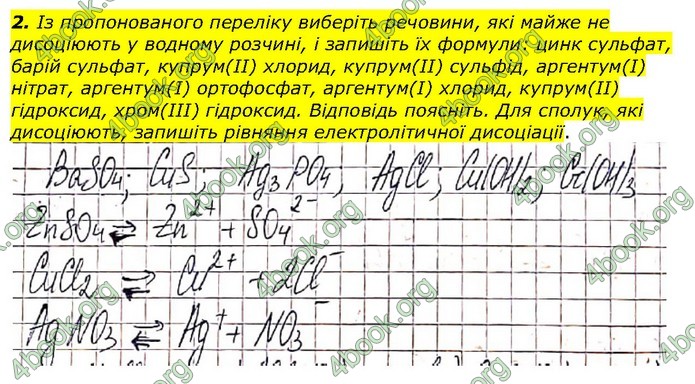 2. Із пропонованого переліку виберіть речовини, які майже не
дисоціюють у водному розчині, і запишіть їх формули: цинк сульфат,
барій сульфат, купрум(II) хлорид, купрум(II) сульфід, аргентум(I)
нітрат, аргентум(I) ортофосфат, аргентум(I) хлорид, купрум(II)
гідроксид, хром(III) гідроксид. Відповідь поясніть. Для сполук, які
дисоціюють, запишіть рівняння електролітичної дисоціації.
BaSO₄; CuS; Ag₃PO₄; AgCl; Cu(OH)₂; Cr(OH)₃
ZnSO₄ ⇄ Zn²⁺ + SO₄²⁻
CuCl₂ ⇄ Cu²⁺ + 2Cl⁻
AgNO₃ ⇄ Ag⁺ + NO₃⁻
4book.org